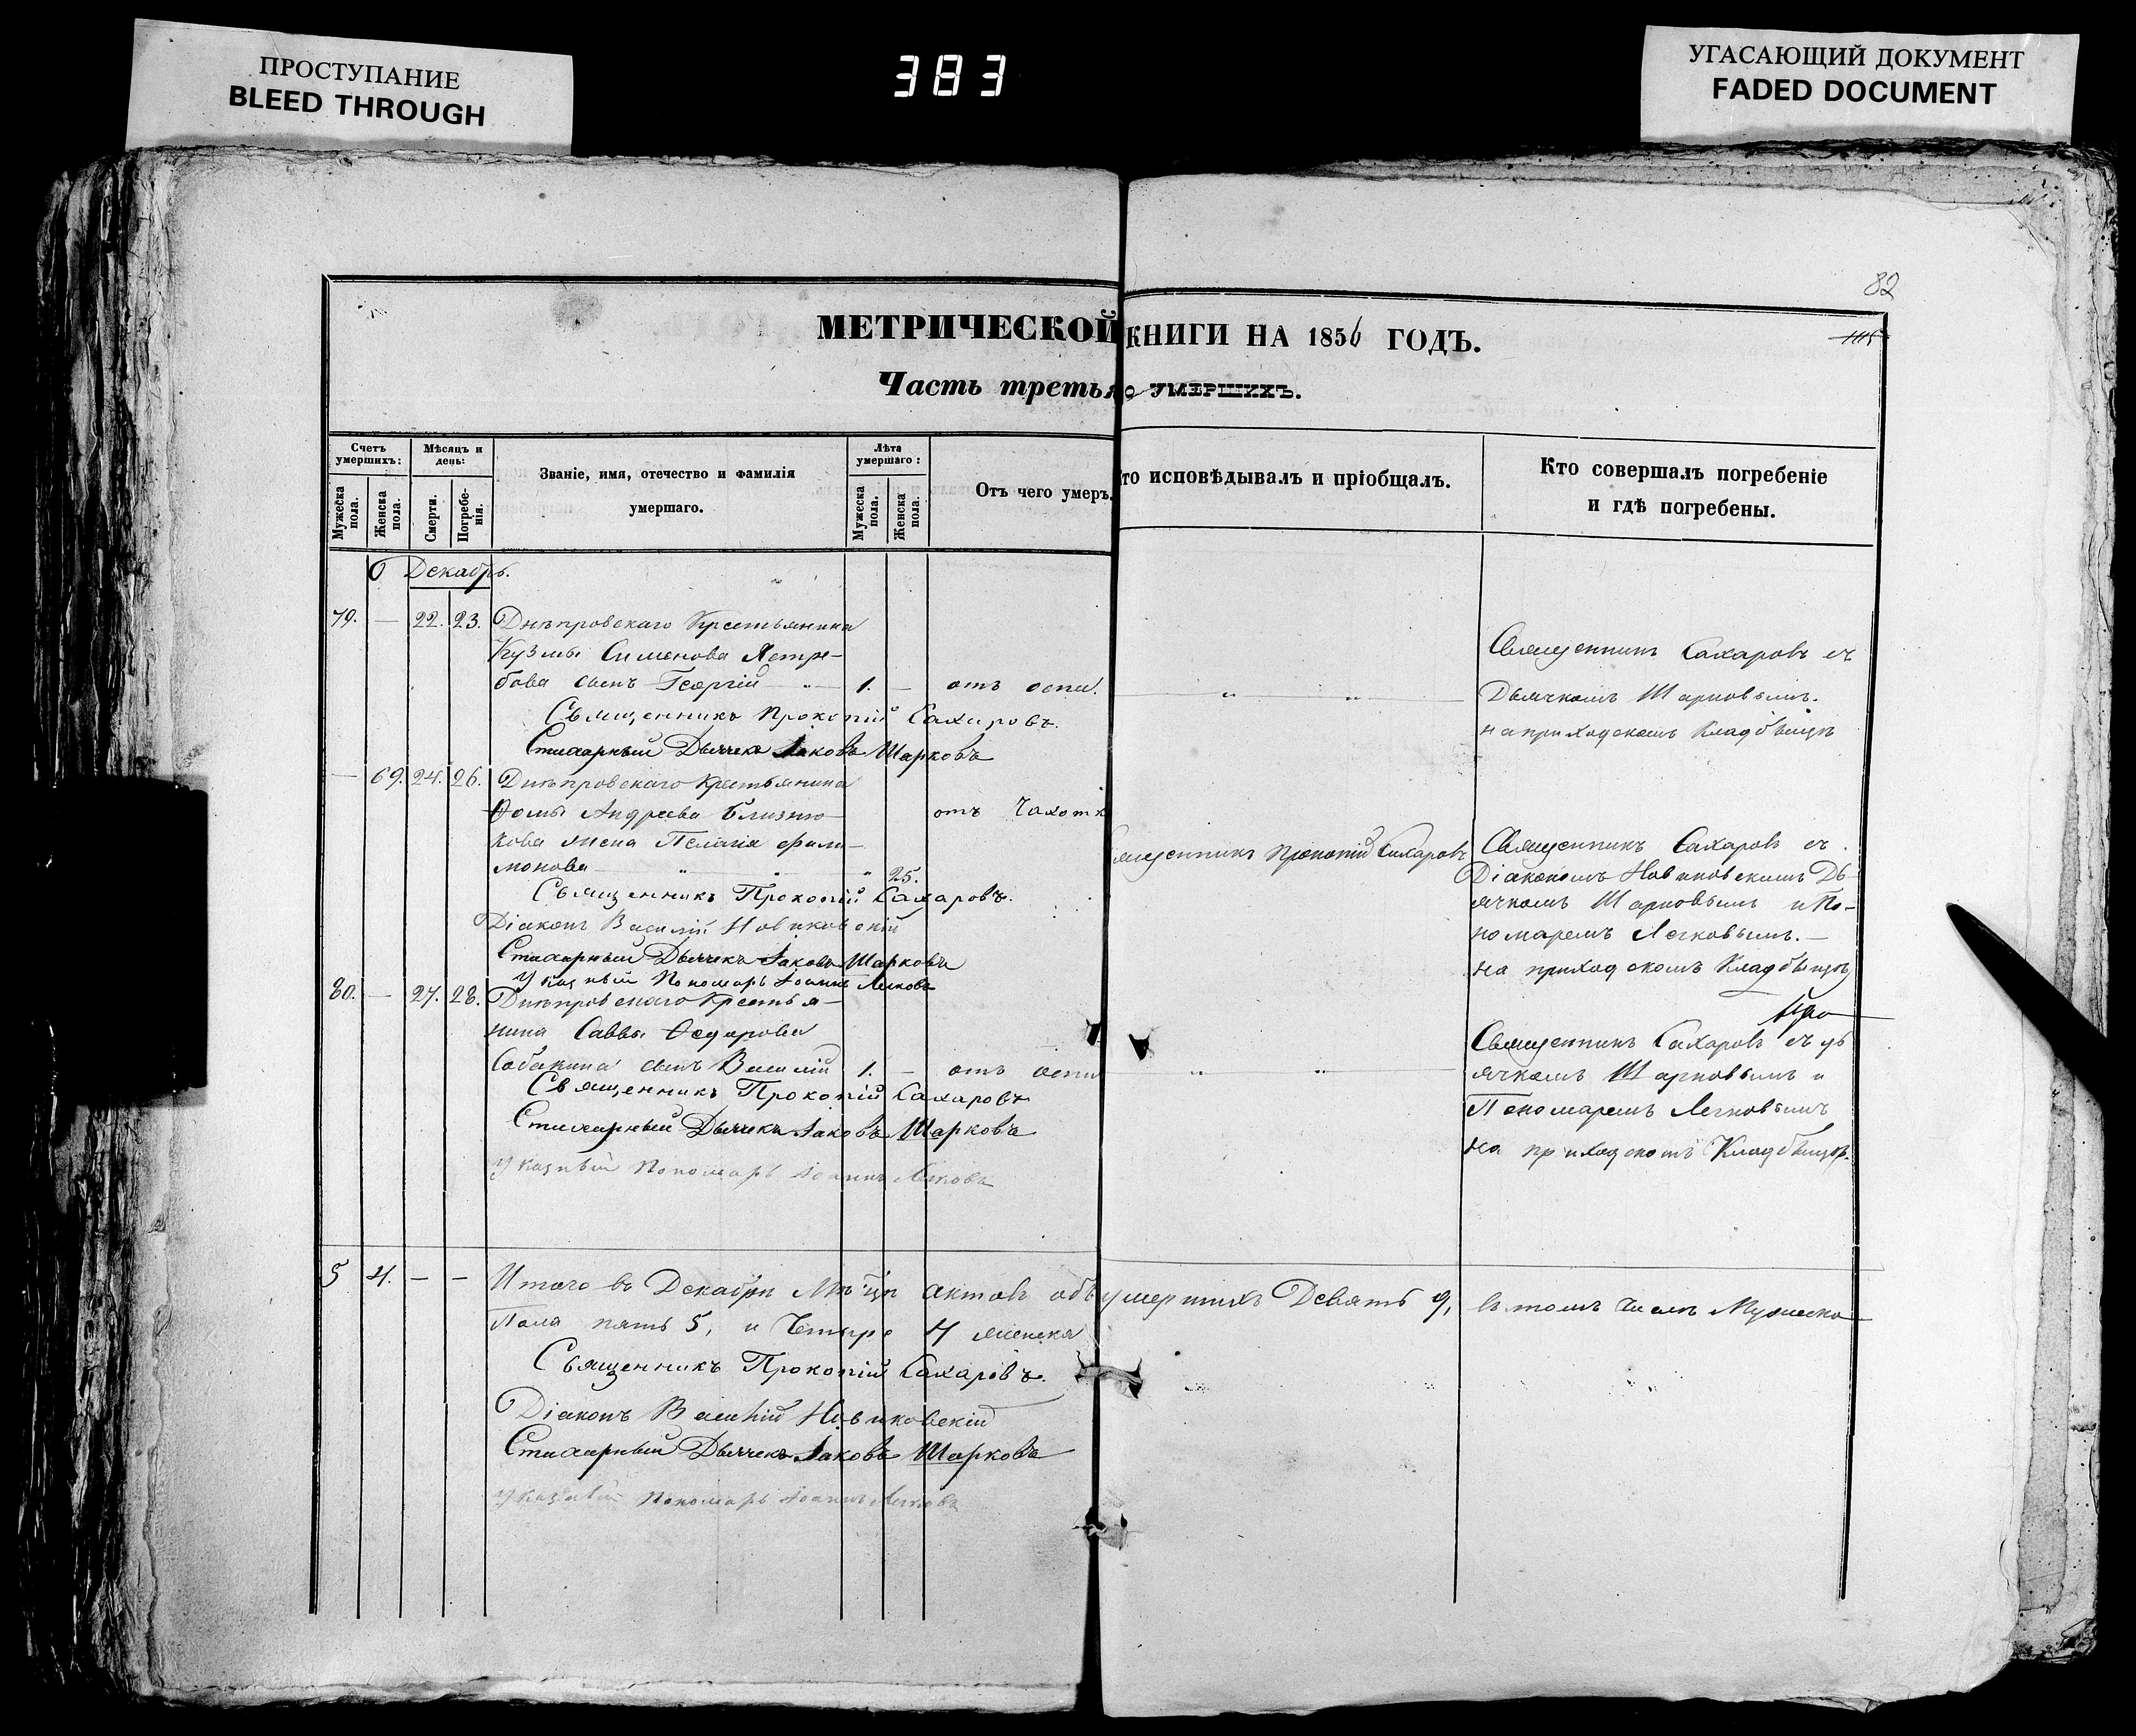 ПРОСТУПАНИЕ
BLEED THROUGH
383
УГАСАЮЩИЙ ДОКУМЕНТ
FADED DOCUMENT
82
МЕТРИЧЕСКОЙ КНИГИ НА 1856 ГОДЪ.
Часть третья о умершихъ.
Счетъ умершихъ:
Мужеска пола.
Женска пола.
Мѣсяцъ и день:
Смерти.
Погребенія.
Званіе, имя, отечество и фамилія
умершаго.
Лѣта умершаго:
Мужеска пола.
Женска пола.
Отъ чего умеръ.
то исповѣдывалъ и пріобщалъ.
Кто совершалъ погребеніе
и гдѣ погребены.
Декабрь.
79. — 22. 23. Днѣпровскаго Крестьянина
Кузмы Сименова Ястре-
бова сынъ Георгій 1. — отъ оспы.
Священникъ Прокопій Сахаровъ.
Стихарный Дьячекъ Іаковъ Шарковъ
Священникъ Сахаровъ съ
Дьячкомъ Шарковымъ.
на приходскомъ Кладбищѣ
— 69. 24. 26. Днѣпровскаго Крестьянина
Ѳомы Андреева Близню-
кова жена Пелагія Фили-
монова 25. отъ Чахотк
Священникъ Прокопій Сахаровъ.
Діаконъ Василій Новиковскій
Стихарный Дьячекъ Іаковъ Шарковъ
Указный Пономарь Іоаннъ Легковъ
ященникъ Прокопій Сахаровъ
Священникъ Сахаровъ съ
Діакономъ Новиковскимъ Дь-
ячкомъ Шарковымъ и По-
номаремъ Легковымъ.—
на приходскомъ Кладбищѣ
80. — 27. 28. Днѣпровскаго Крестья-
нина Саввы Ѳедорова
Собакина сынъ Василій 1. — отъ оспы
Священникъ Прокопій Сахаровъ
Стихарный Дьячекъ Іаковъ Шарковъ
Указный Пономарь Іоаннъ Легковъ
Священникъ Сахаровъ съ дь
ячкомъ Шарковымъ и
Пономаремъ Легковымъ
на приходскомъ Кладбищѣ.
5 4. — — Итого въ Декабрѣ Мѣ-цѣ актовъ объ умершихъ Девять 9, въ томъ числѣ Мужеска
Пола пять 5, и Четыре 4 женска
Священникъ Прокопій Сахаровъ.
Діаконъ Василій Новиковскій
Стихарный Дьячекъ Іаковъ Шарковъ
Указный Пономарь Іоаннъ Легковъ